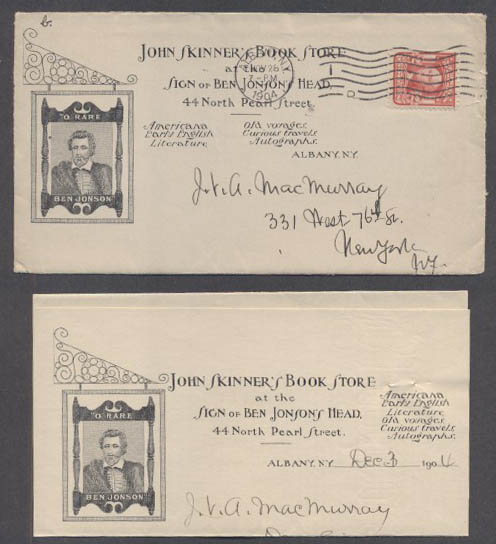 b.
JOHN SKINNER'S BOOK STORE
at the
SIGN OF BEN JONSON'S HEAD,
44 North Pearl Street.
"O RARE
BEN JONSON"
Americana
Early English
Literature,
Old voyages
Curious travels
Autographs.
ALBANY, N.Y.
1904
J. V. A. MacMurray
331 West 76th St.
New York
N.Y.
"O RARE
BEN JONSON"
JOHN SKINNER'S BOOK STORE
at the
SIGN OF BEN JONSON'S HEAD,
44 North Pearl Street.
Americana
Early English
Literature
Old voyages
Curious travels
Autographs.
ALBANY, N.Y. Dec 3 1904
J. V. A. MacMurray